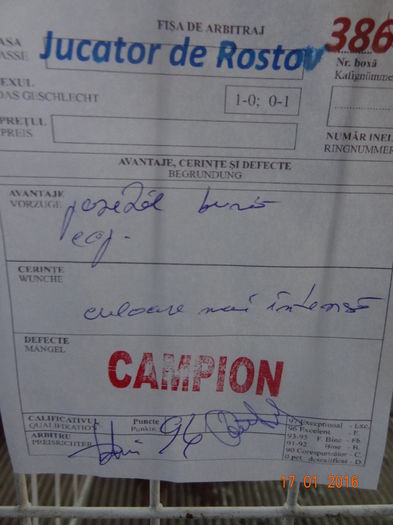 FIȘA DE ARBITRAJ
ASA
ASSE
Jucator de Rostov
386
Nr. boxă
EXUL
DAS GESCHLECHT
1-0; 0-1
PREȚUL
PREIS
NUMĂR INEL
RINGNUMMER
AVANTAJE, CERINȚE ȘI DEFECTE
BEGRUNDUNG
AVANTAJE
VORZUGE
bună
cap.
CERINȚE
WUNCHE
culoare mai intensă
DEFECTE
MANGEL
CAMPION
CALIFICATIVUL
QUALIFIKATION
Puncte
Punkte
96
ARBITRU
PREISRICHTER
97 Exceptional - Exc.
96 Excelent - E.
93-95 F. Bine - Fb.
91-92 Bine - B.
90 Corespunzător - C.
0 pct. descalificat - D.
17 01 2016